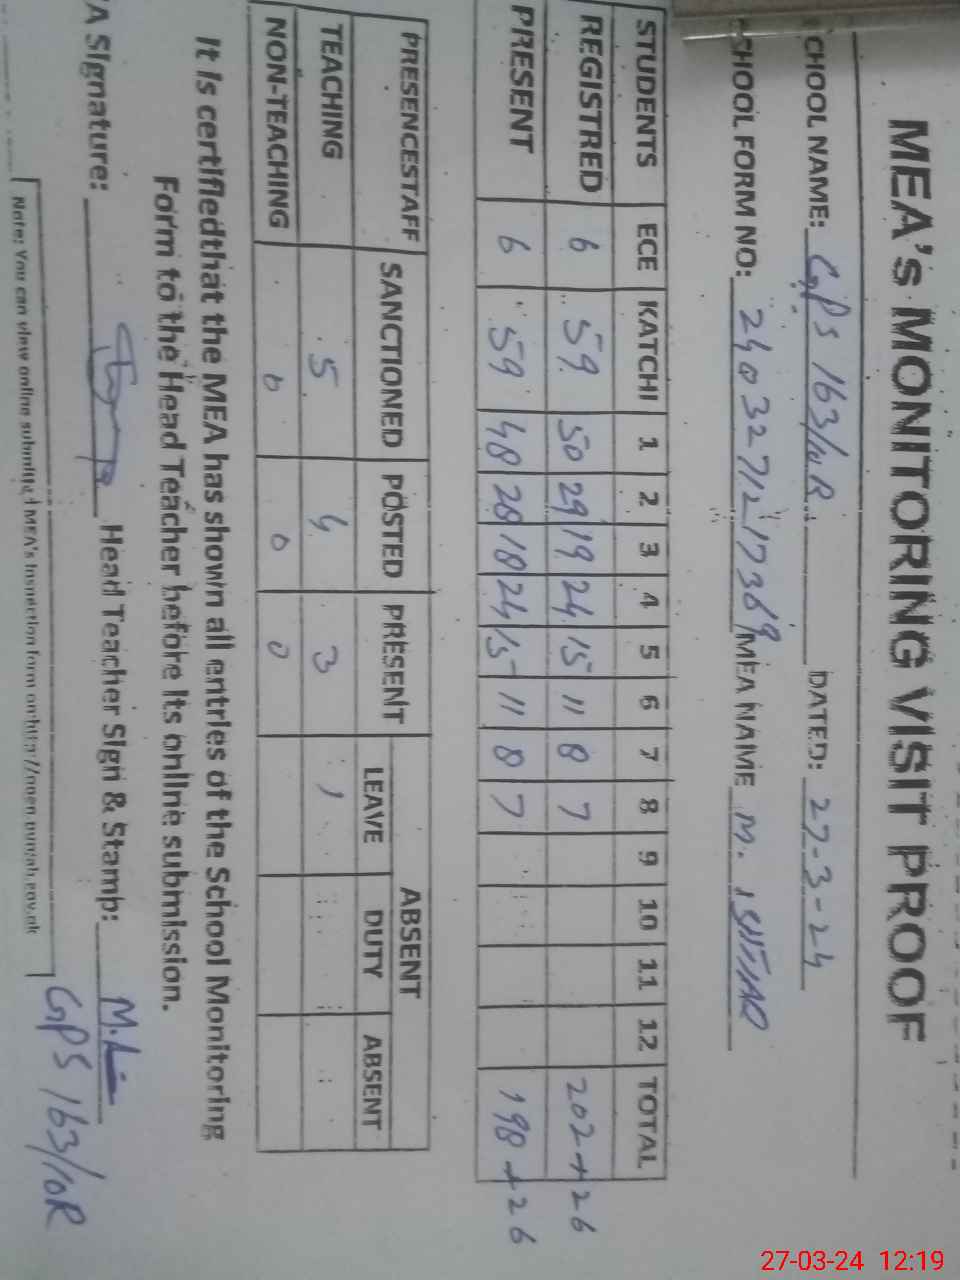 MEA's MONITORING VISIT PROOF
CHOOL NAME: GPS 163/10R DATED: 27-3-24
CHOOL FORM NO: 2403271217369 MEA NAME M.
STUDENTS ECE KATCHI 1 2 3 4 5 6 7 8 9 10 11 12 TOTAL
REGISTRED 6 59 50 29 19 24 15 11 8 7 202+26
PRESENT 6 59 48 28 18 24 15 11 8 7 198+26
PRESENCESTAFF SANCTIONED POSTED PRESENT ABSENT
LEAVE DUTY ABSENT
TEACHING 5 4 3 1
NON-TEACHING 0 0 0
It is certifiedthat the MEA has shown all entries of the School Monitoring
Form to the Head Teacher before its online submission.
A Signature: Head Teacher Sign & Stamp: M.
GPS 163/10R
Note: You can view online submitted MEA's Inspection form on
27-03-24 12:19